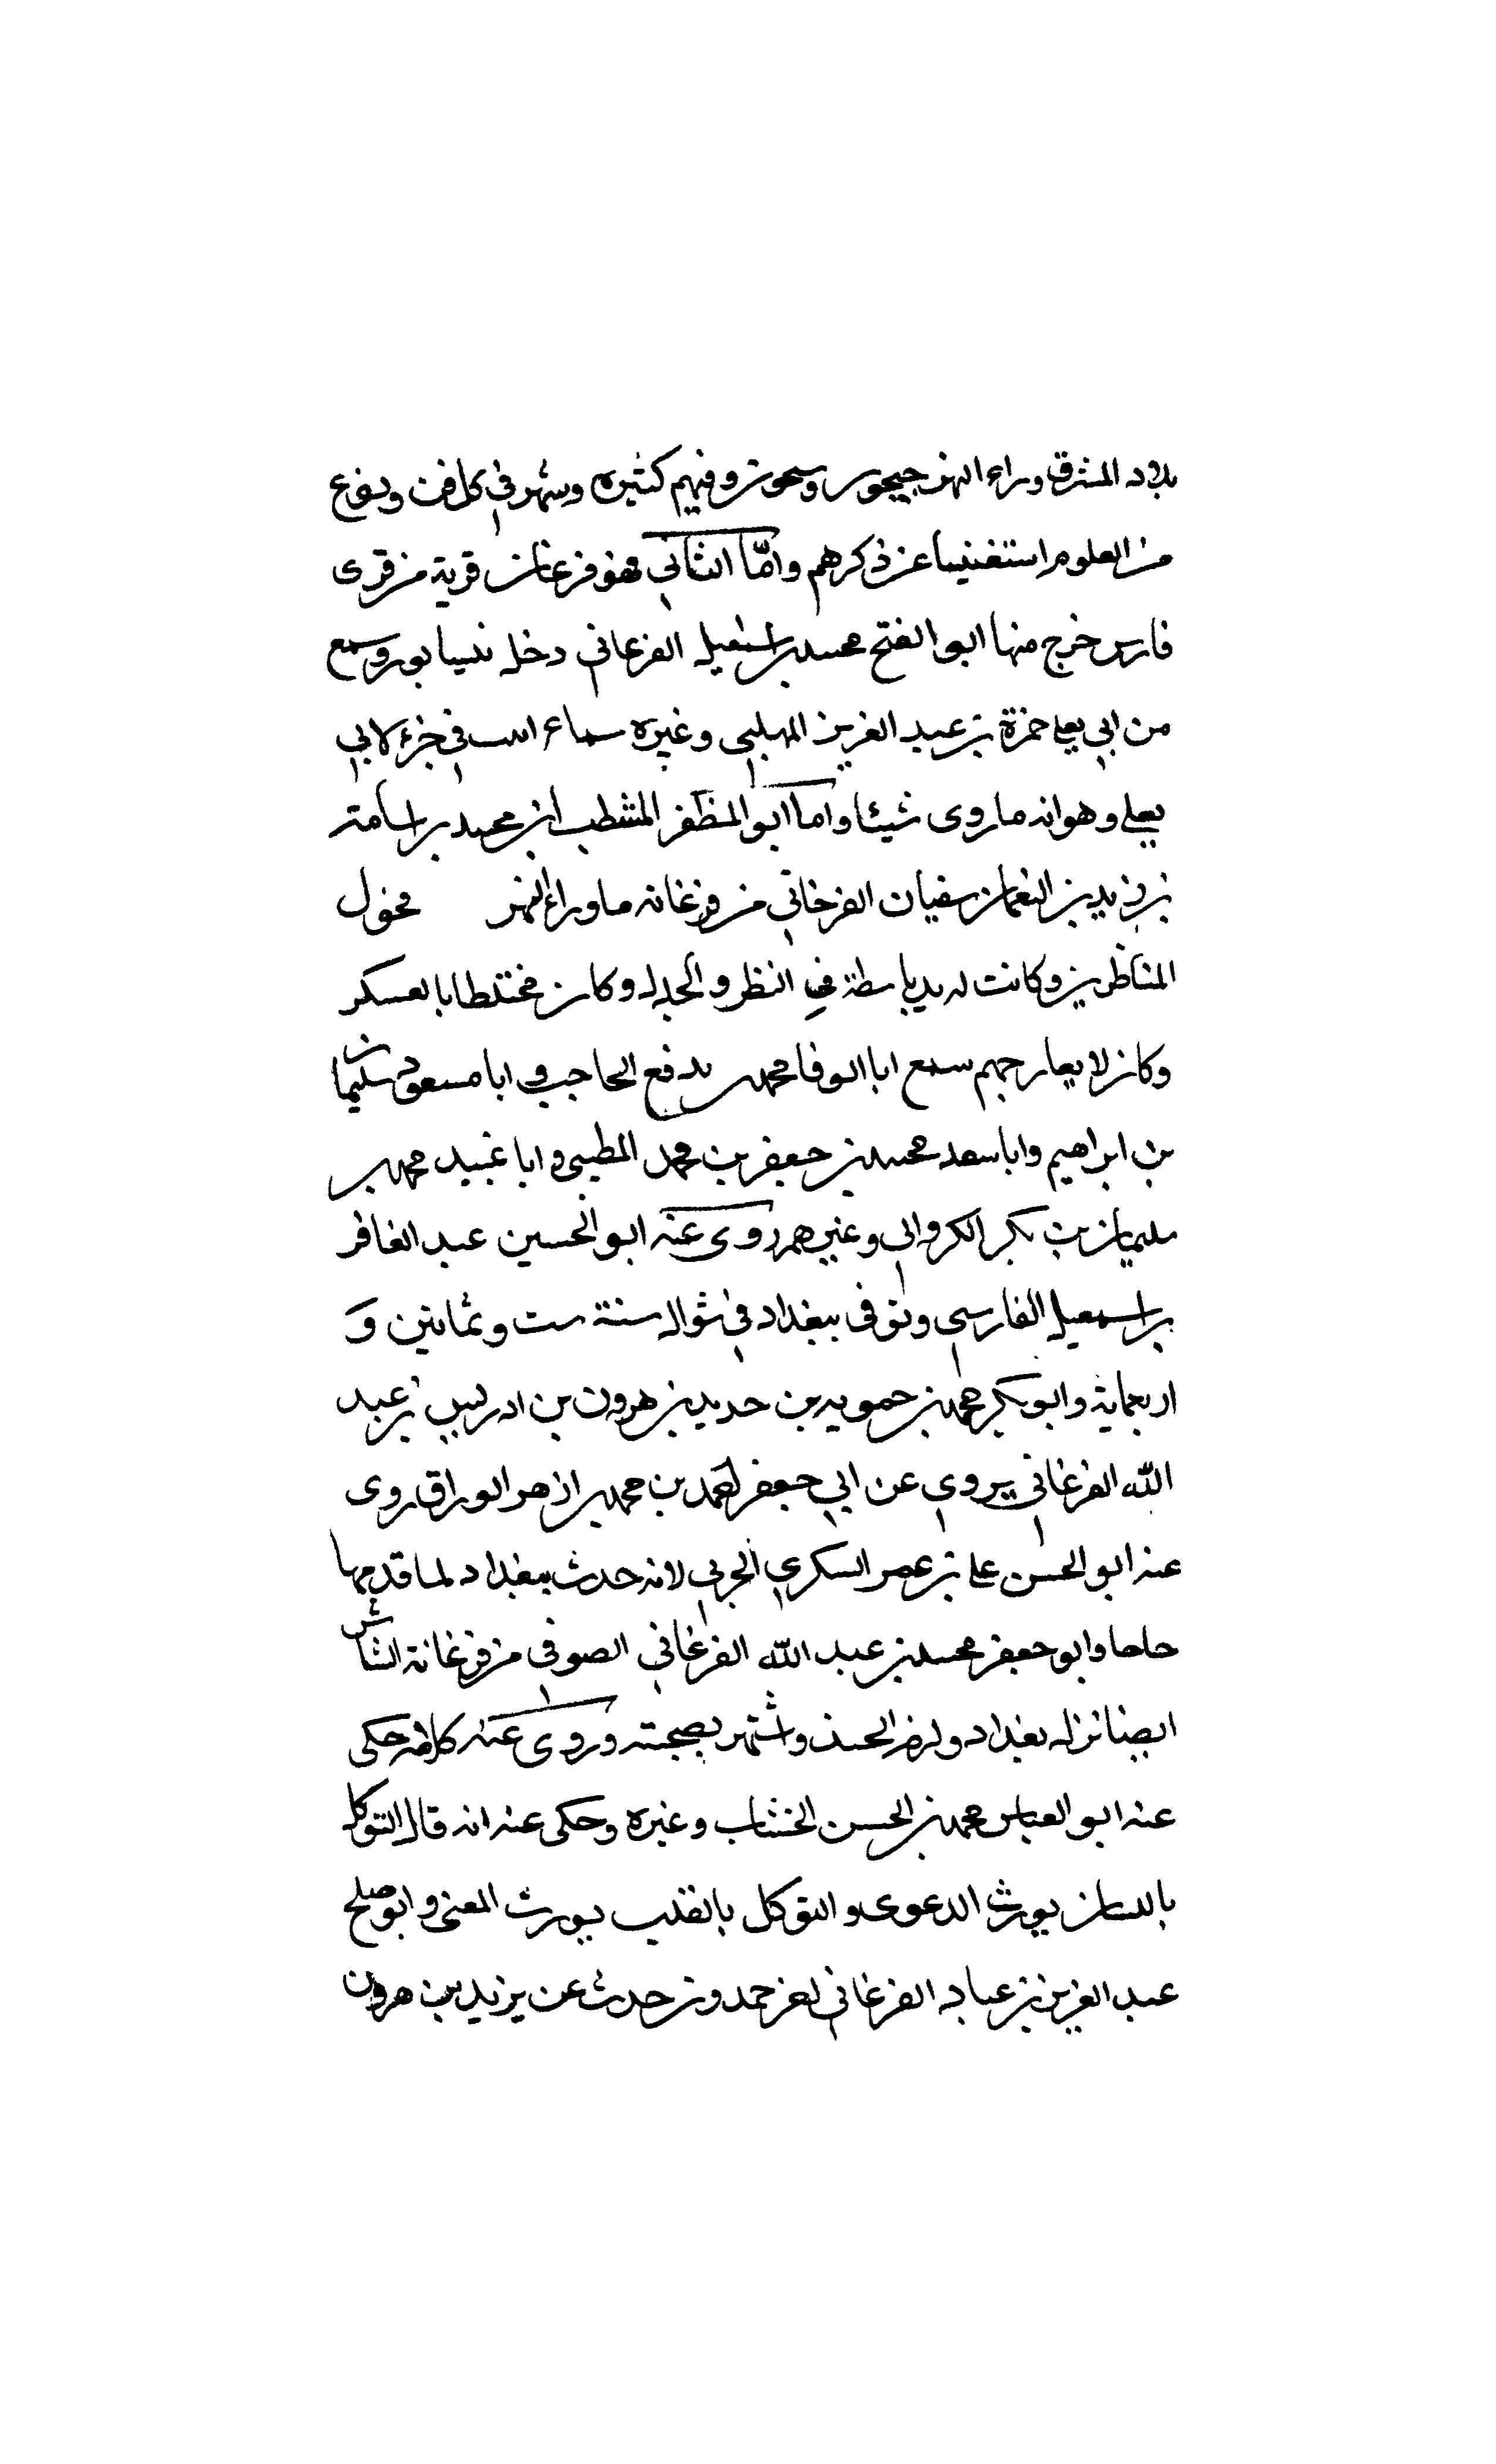 بلاد المشرق وراء النهر جيحون وسيحون وفيهم كثيرة وشهر في كل فن ونوع
من العلوم استغنينا عن ذكرهم وامّا الثاني فهو فرغان قرية من قرى
فارس خرج منها ابو الفتح محمد بن اسمعيل الفرغاني دخل نيسابور وسمع
من ابي يعلى حمزة بن عبد العزيز المهلبي وغيره سماع في جزء لابي
يعلى وهو انه ما روى شيئا واما ابو المظفر المشطب بن محمد بن اسامة
بن زيد بن النعمان سفيان الفرغاني من فرغانة ما وراء النهر فحول
المناظرين وكانت له يد باسطة في النظر والجدل وكان مختلطا بالعسكر
وكان لا يفارجهم سمع ابا الوفا محمد بن بدفع الحاجب و ابا مسعود سليمان
بن ابراهيم وابا سعد محمد بن جعفر بن محمد المطيبي و ابا عبيد محمد بن
سليمان بن بكر الكرواني وغيرهم روى عنه ابو الحسين عبد الغافر
بن اسمعيل الفارسي وتوفى ببغداد في شوال سنة ست وثمانين وَ
اربعماية وابو بكر محمد بن حمويه بن حديد بن هرون بن ادريس بن عبد
الله الفرغاني يروى عن ابي جعفر احمد بن محمد بن ازهر الوراق روى
عنه ابو الحسن على بن عمر السكري الحربي لانه حدث ببغداد لما قدمها
حاجا وابو جعفر محمد بن عبد الله الفرغاني الصوفي من فرغانة الشاش
ايضا نزل بغداد ولزم الجنيد واشتهر بصحبته وروى عنه كلامه حكى
عنه ابو العباس محمد بن الحسن الخشاب وغيره وحكى عنه انه قال التوكل
باللسان يورث الدعوى والتوكل بالقلب يورث المعنى و ابو صلح
عبد العزيز بن عباد الفرغاني اخو حمدون حدث عن يزيد بن هرون